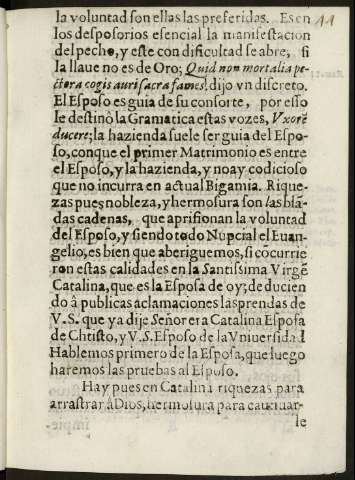 la voluntad son ellas las preferidas. Es en
los desposorios esencial la manifestacion
del pecho, y este con dificultad se abre, si
la llaue no es de Oro; Quid non mortalia pe-
ctora cogis auri sacra fames, dijo vn discreto.
El Esposo es guia de su consorte, por esso
le destinò la Gramatica estas vozes, Vxorẽ
ducere; la hazienda suele ser guia del Espo-
so, conque el primer Matrimonio es entre
el Esposo, y la hazienda, y no ay codicioso
que no incurra en actual Bigamia. Rique-
zas pues nobleza, y hermosura son las blã-
das cadenas, que aprisionan la voluntad
del Esposo, y siendo todo Nupcial el Euan-
gelio, es bien que aberiguemos, si cocurrie
ron estas calidades en la Santissima Virgẽ
Catalina, que es la Esposa de oy; deducien
do à publicas aclamaciones las prendas de
V.S. que ya dije Señor era Catalina Esposa
de Chtisto, y V.S. Esposo de la Vniuersidad
Hablemos primero de la Esposa, que luego
haremos las pruebas al Esposo.
Hay pues en Catalina riquezas para
arrastrar á Dios, hermosura para cautiuar-
le
11